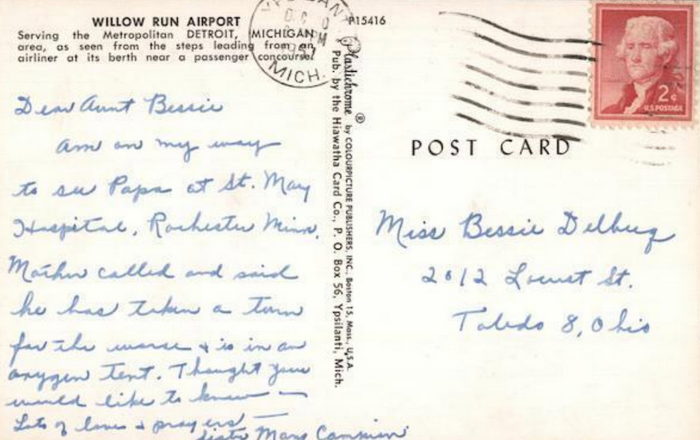 WILLOW RUN AIRPORT
Serving the Metropolitan DETROIT, MICHIGAN
area, as seen from the steps leading from an
airliner at its berth near a passenger concourse.
P15416
MICH.
Plastichrome ® by COLOURPICTURE PUBLISHERS, INC., Boston 15, Mass., U.S.A.
Pub. by the Hiawatha Card Co., P. O. Box 56, Ypsilanti, Mich.
2¢
U.S. POSTAGE
POST CARD
Dear Aunt Bessie
Am on my way
to see Papa at St. Mary
Hospital, Rochester Minn.
Mother called and said
he has taken a turn
for the worse & is in an
oxygen tent. Thought you
would like to know —
Lots of love & prayers —
Sister Mary
Miss Bessie
2012 Locust St.
Toledo 8, Ohio